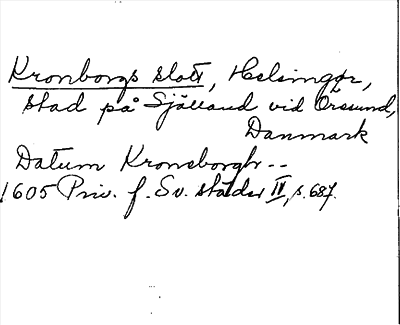 Kronborgs slott, Helsingør,
stad på Sjålland vid Öresund,
Danmark
Datum Kroneborgh--
1605 Priv. f. Sv. städer IV, s. 687.